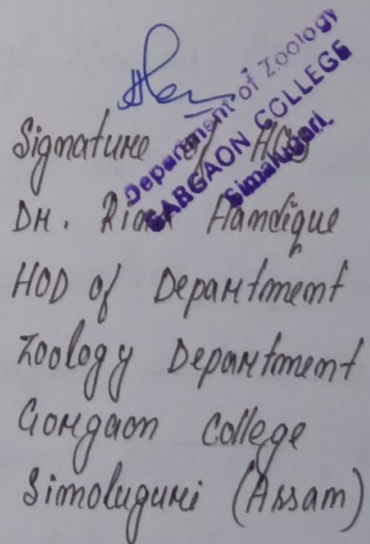 Department of Zoology
GARGAON COLLEGE
Simaluguri
Signature of HOD
Dr. Rima Handique
HOD of Department
Zoology Department
Gorgaon College
Simoluguri (Assam)